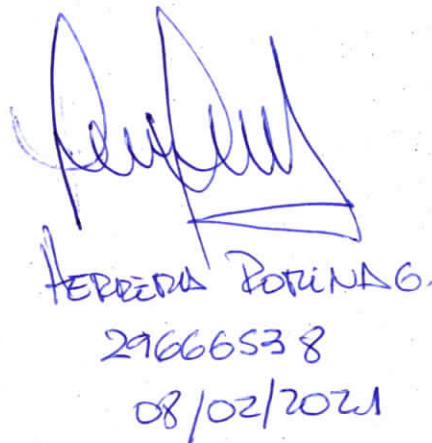 HERRERA ROMINA G.
29666538
08/02/2021